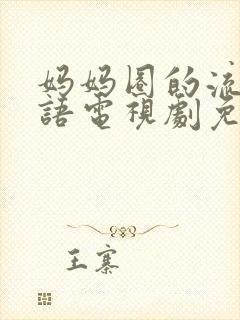 妈妈圈的流
語電視劇免
王寨